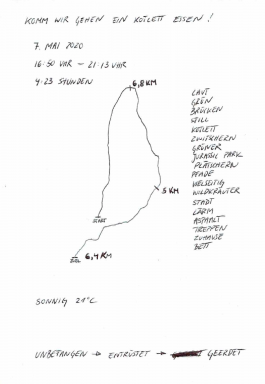 KOMM WIR GEHEN EIN KOTLETT ESSEN!
7. MAI 2020
16:50 UHR – 21:13 UHR
4:23 STUNDEN
6,8 KM
LAUT
GRÜN
BRÜCKEN
STILL
KOTLETT
ZWITSCHERN
GRÜNER
JURASSIC PARK
PLÄTSCHERN
PFADE
VIELSEITIG
WILDKRÄUTER
STADT
LÄRM
ASPHALT
TREPPEN
ZUHAUSE
BETT
5 KM
START
ZIEL 6,4 KM
SONNIG 21°C
UNBEFANGEN → ENTRÜSTET → GEERDET